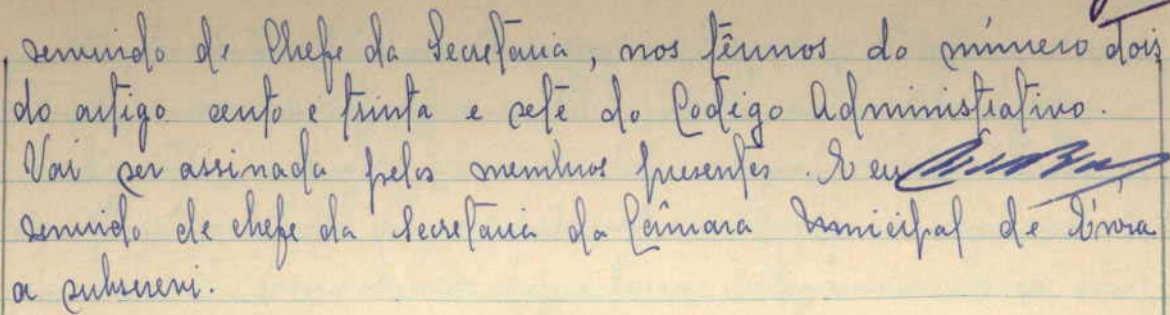 , servindo de Chefe da Secretaria, nos têrmos do número dois
do artigo cento e trinta e sete do Codigo Administrativo.
Vai ser assinada pelos membros presentes. E eu
servindo de chefe da Secretaria da Câmara Municipal de Évora
a subscrevi.